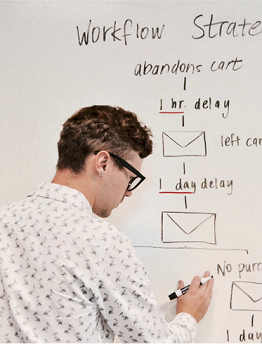 Workflow Strate
abandons cart
1 hr. delay
left car
1 day delay
No purc
1 day